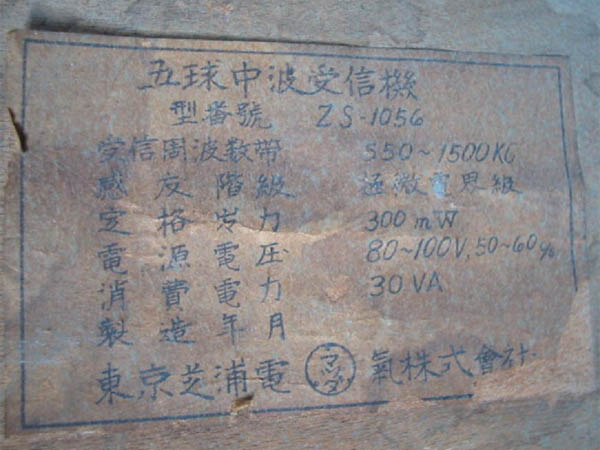 五球中波受信機
型番號 ZS-1056
受信周波数帶 550~1500KC
感度階級 極微電界級
定格出力 300mW
電源電圧 80~100V, 50~60%
消費電力 30VA
製造年月
東京芝浦電 マツダ 氣株式會社